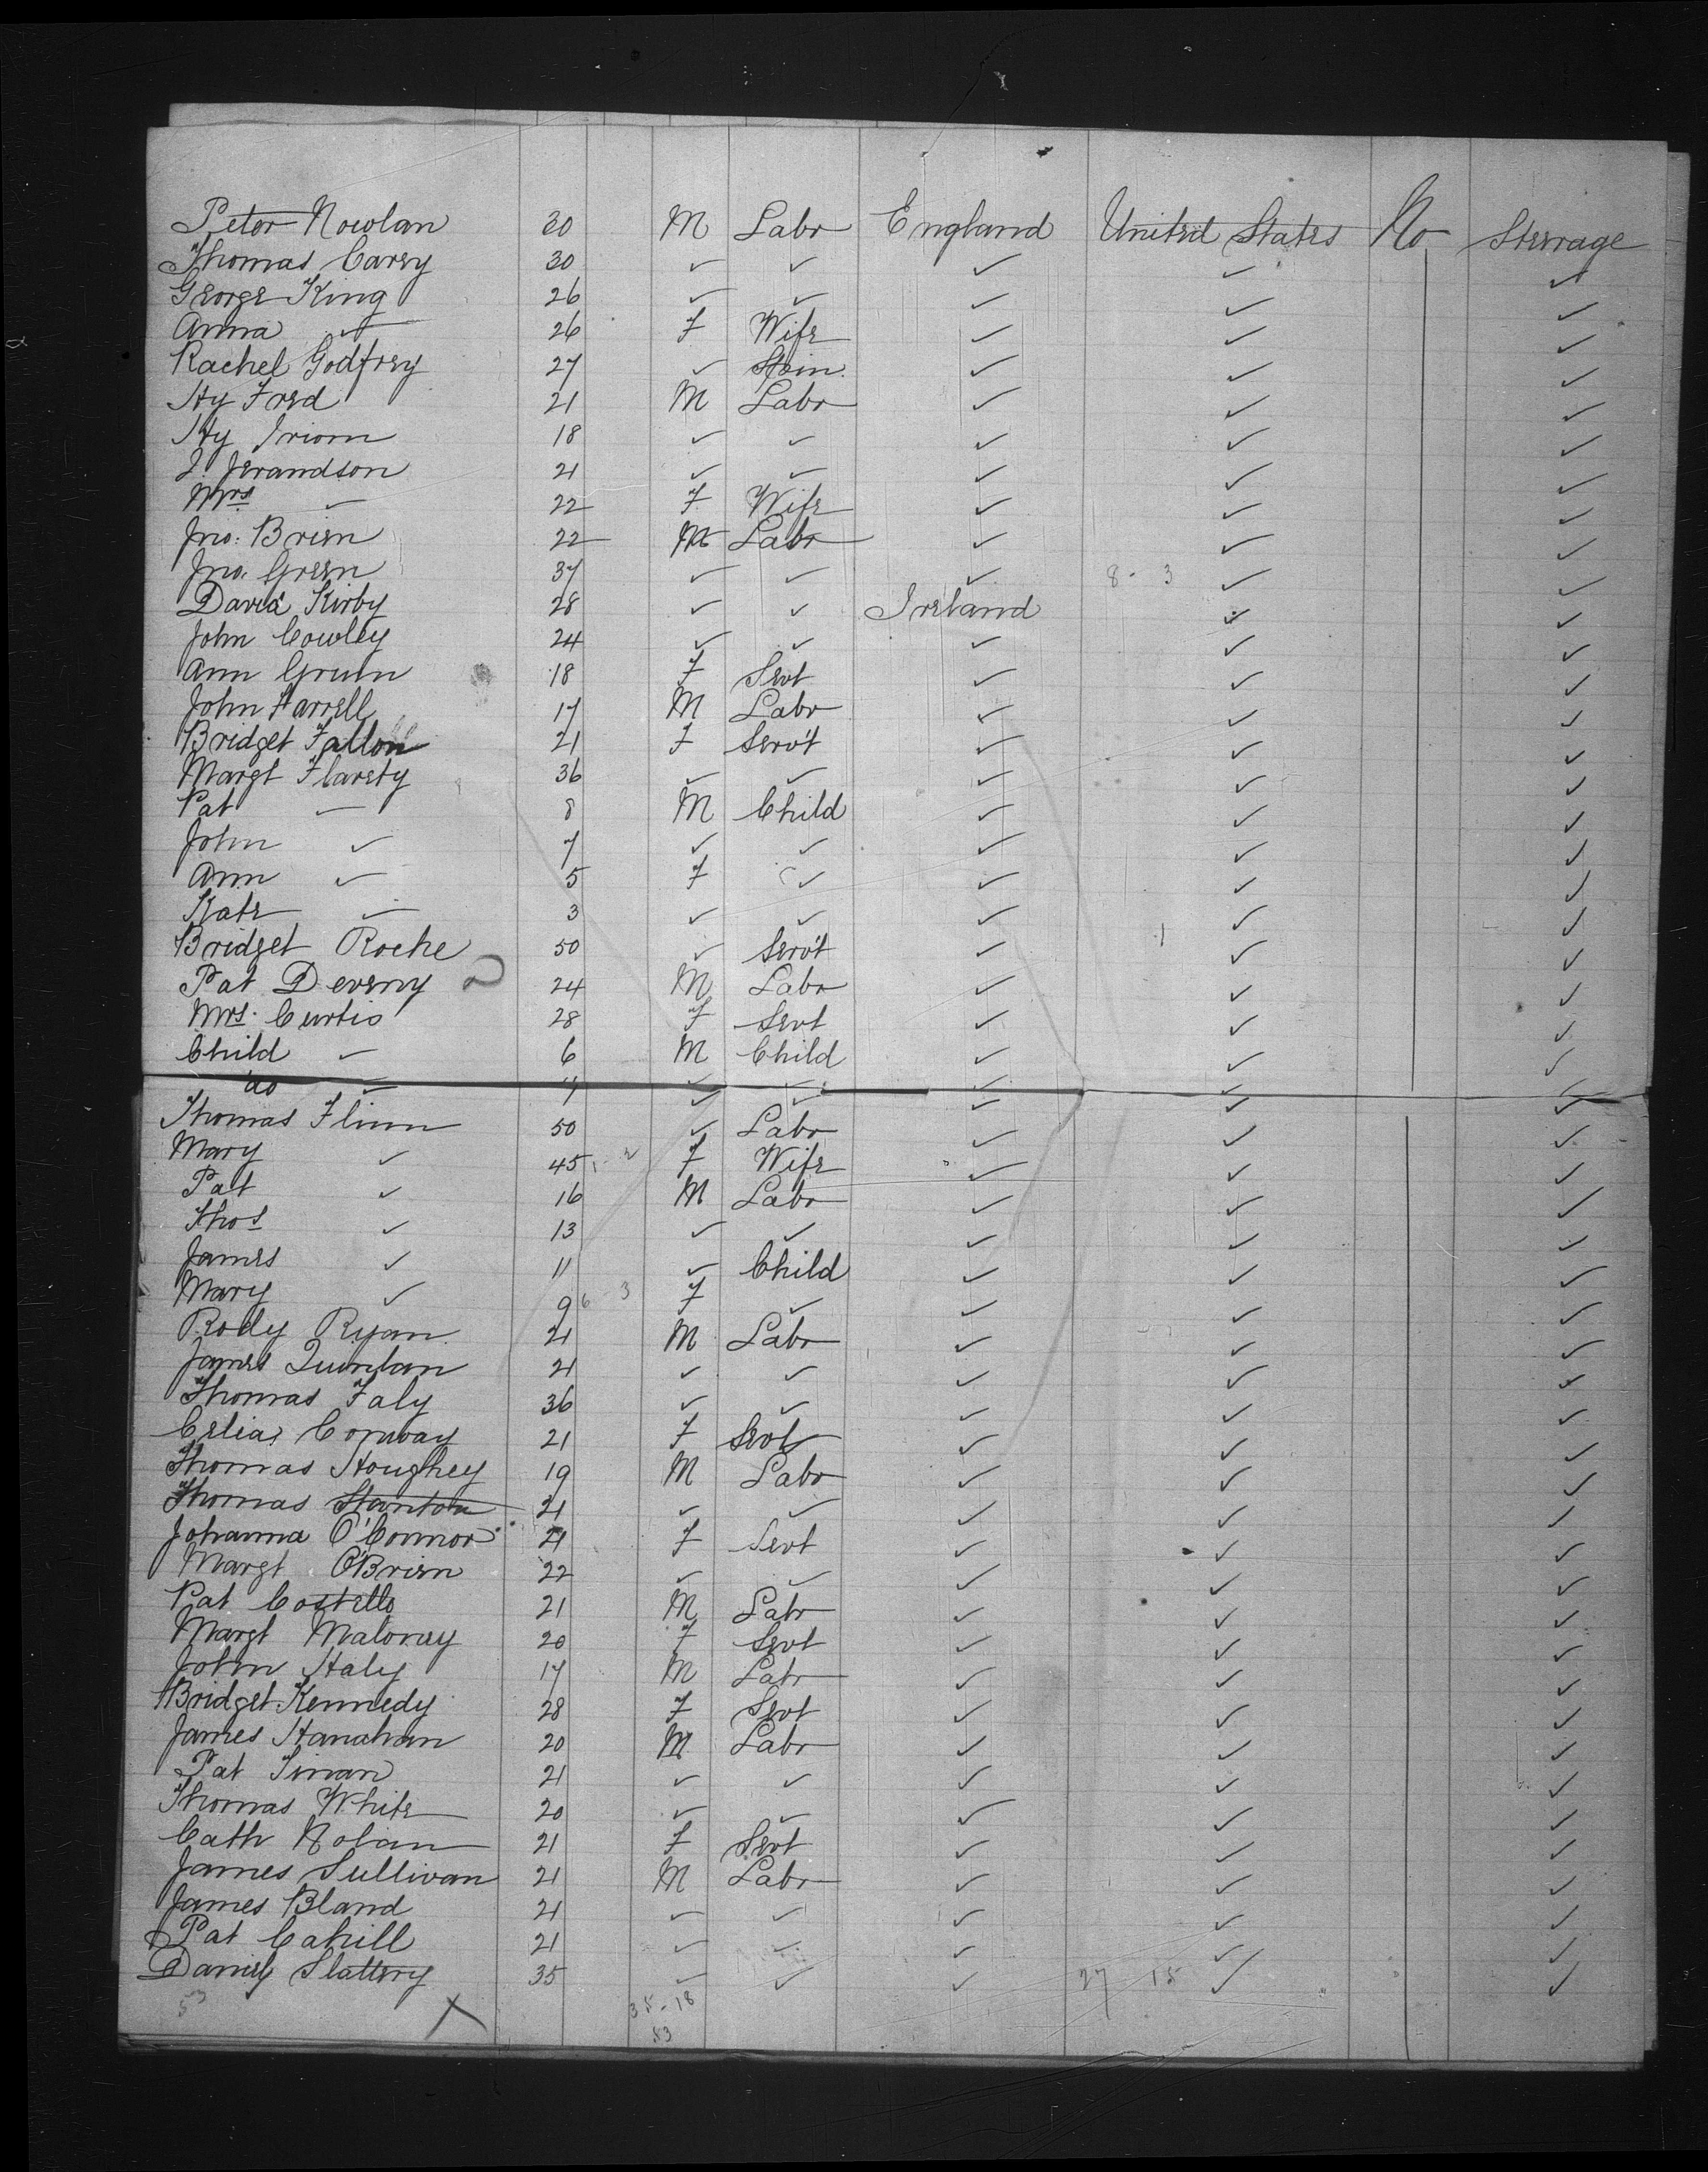 Peter Nowlan 30 M Labr England United States No Steerage
Thomas Carey 30 ✓ ✓ ✓ ✓ ✓
George King 26 ✓ ✓ ✓ ✓ ✓
Anna ✓ 26 F Wife ✓ ✓ ✓
Rachel Godfrey 27 ✓ Spin. ✓ ✓ ✓
Hy Ford 21 M Labr ✓ ✓ ✓
Hy 18 ✓ ✓ ✓ ✓ ✓
J. Jerandson 21 ✓ ✓ ✓ ✓ ✓
Mrs ✓ 22 F Wife ✓ ✓ ✓
Jno. Brien 22 M Labr ✓ ✓ ✓
Jno. Green 37 ✓ ✓ ✓ 8 - 3 ✓ ✓
David Kirby 28 ✓ ✓ Ireland ✓ ✓
John Cowley 24 ✓ ✓ ✓ ✓ ✓
Ann 18 F Servt ✓ ✓ ✓
John Farrell 17 M Labr ✓ ✓ ✓
Bridget Fallon 21 F Serv't ✓ ✓ ✓
Margt Flarety 36 ✓ ✓ ✓ ✓ ✓
Pat — 8 M Child ✓ ✓ ✓
John ✓ 7 ✓ ✓ ✓ ✓ ✓
Ann ✓ 5 F ✓ ✓ ✓ ✓
Kate ✓ 3 ✓ ✓ ✓ ✓ ✓
Bridget Roche 50 ✓ Serv't ✓ ✓ ✓
Pat Deveny 24 M Labr ✓ ✓ ✓
Mrs. Curtis 28 F Servt ✓ ✓ ✓
Child ✓ 6 M Child ✓ ✓ ✓
do ✓ ✓ ✓ ✓ ✓ ✓
Thomas Flinn 50 ✓ Labr ✓ ✓ ✓
Mary ✓ 45 F Wife ✓ ✓ ✓
Pat ✓ 16 M Labr ✓ ✓ ✓
Thos ✓ 13 ✓ ✓ ✓ ✓ ✓
James ✓ 11 ✓ Child ✓ ✓ ✓
Mary ✓ 9 6 - 3 F ✓ ✓ ✓ ✓
Rody Ryan 21 M Labr ✓ ✓ ✓
James Quinlan 21 ✓ ✓ ✓ ✓ ✓
Thomas Faly 36 ✓ ✓ ✓ ✓ ✓
Celia Conway 21 F Servt ✓ ✓ ✓
Thomas Houghey 19 M Labr ✓ ✓ ✓
Thomas Stanton 21 ✓ ✓ ✓ ✓ ✓
Johanna O'Connor 21 F Servt ✓ ✓ ✓
Margt O'Brien 22 ✓ ✓ ✓ ✓ ✓
Pat Costello 21 M Labr ✓ ✓ ✓
Margt Maloney 20 F Servt ✓ ✓ ✓
John Haly 17 M Labr ✓ ✓ ✓
Bridget Kennedy 28 F Servt ✓ ✓ ✓
James Hanahan 20 M Labr ✓ ✓ ✓
Pat 21 ✓ ✓ ✓ ✓ ✓
Thomas White 20 ✓ ✓ ✓ ✓ ✓
Cath Nolan 21 F Servt ✓ ✓ ✓
James Sullivan 21 M Labr ✓ ✓ ✓
James Bland 21 ✓ ✓ ✓ ✓ ✓
Pat Cahill 21 ✓ ✓ ✓ ✓ ✓
Daniel Slattery 35 ✓ ✓ ✓ 27 15 ✓ ✓
53 X 35 - 18
53